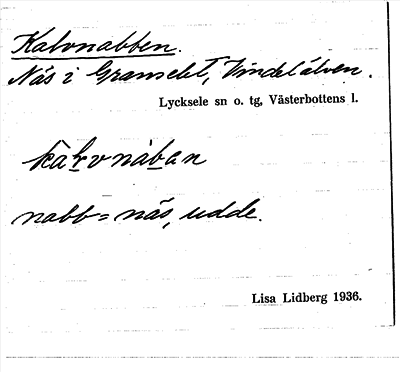 Kalvnabben.
Näs i Granselet, Vindelälven.
Lycksele sn o. tg, Västerbottens l.
nabb = näs, udde.
Lisa Lidberg 1936.